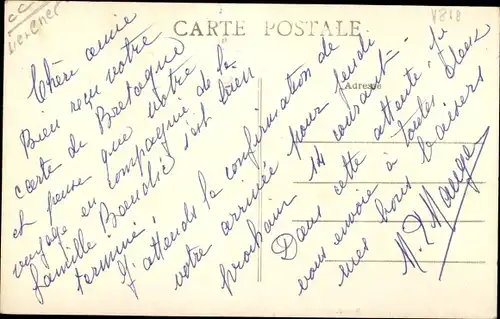 CARTE POSTALE
Adresse
Chère amie
Bien reçu votre
carte de Bretagne
et pense que votre
voyage en compagnie de la
famille s'est bien
terminé.
J'attends la confirmation de
votre arrivée pour jeudi
prochain 14 courant.
Dans cette attente je
vous envoie à toutes deux
mes bons baisers